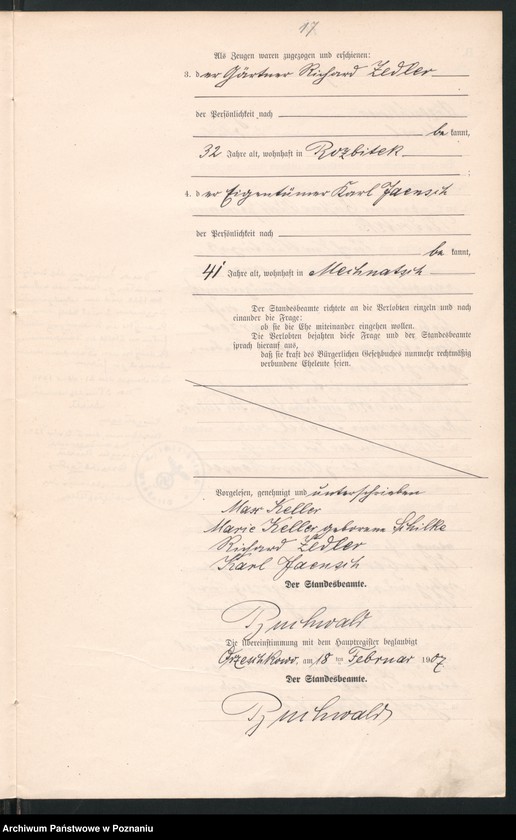 17
Als Zeugen waren zugezogen und erschienen:
3. der Gärtner Richard Zedler
der Persönlichkeit nach
be kannt,
32 Jahre alt, wohnhaft in Rozbitek
4. der Eigentümer Karl Jaensch
der Persönlichkeit nach
be kannt,
41 Jahre alt, wohnhaft in Mechnatsch
Der Standesbeamte richtete an die Verlobten einzeln und nach
einander die Frage:
ob sie die Ehe miteinander eingehen wollen.
Die Verlobten bejahten diese Frage und der Standesbeamte
sprach hierauf aus,
daß sie kraft des Bürgerlichen Gesetzbuches nunmehr rechtmäßig
verbundene Eheleute seien.
Vorgelesen, genehmigt und unterschrieben
Max Keller
Marie Keller geborene Schilke
Richard Zedler
Karl Jaensch
Der Standesbeamte.
Buchwald
Die Übereinstimmung mit dem Hauptregister beglaubigt
Orzeschkowo, am 18 ten Februar 1907
Der Standesbeamte.
Buchwald
Archiwum Państwowe w Poznaniu